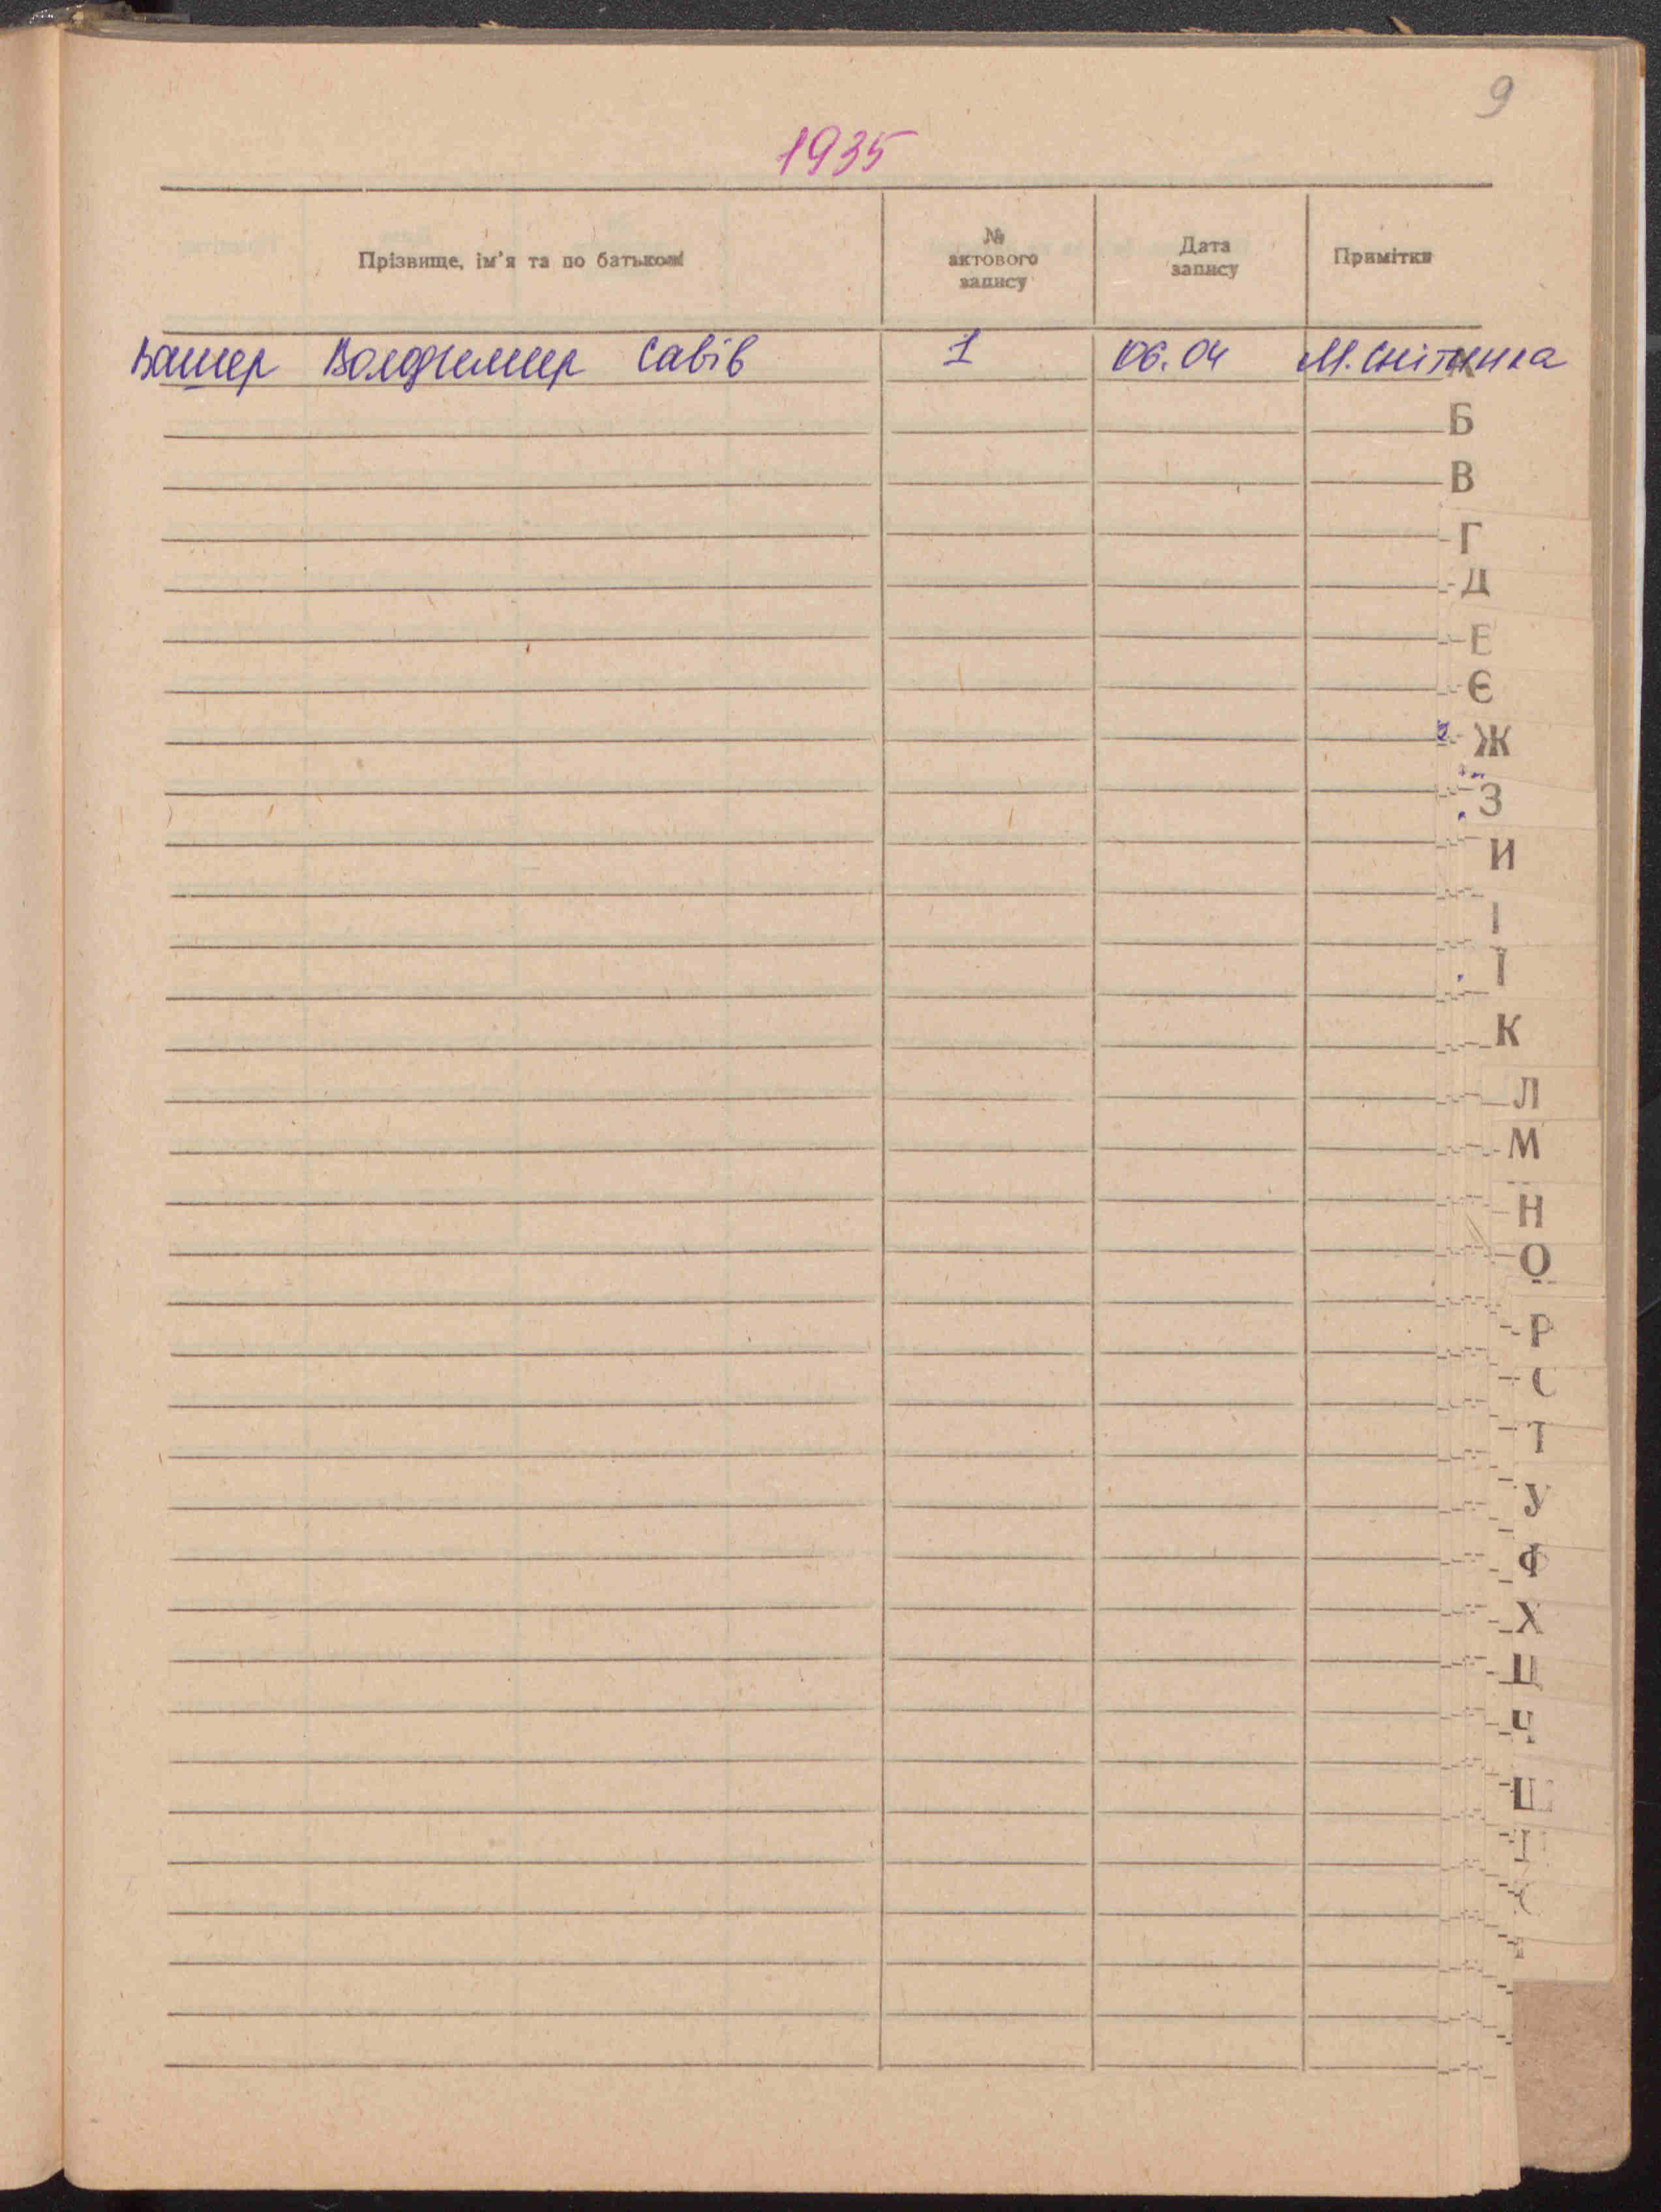 9
1935
Прізвище, ім'я та по батькові
№ актового запису
Дата запису
Примітки
Вашер Володимир Савів 1 06.04 М. Снітинка
Б
В
Г
Д
Е
Є
Ж
З
И
І
Ї
К
Л
М
Н
О
Р
С
Т
У
Ф
Х
Ц
Ч
Ш